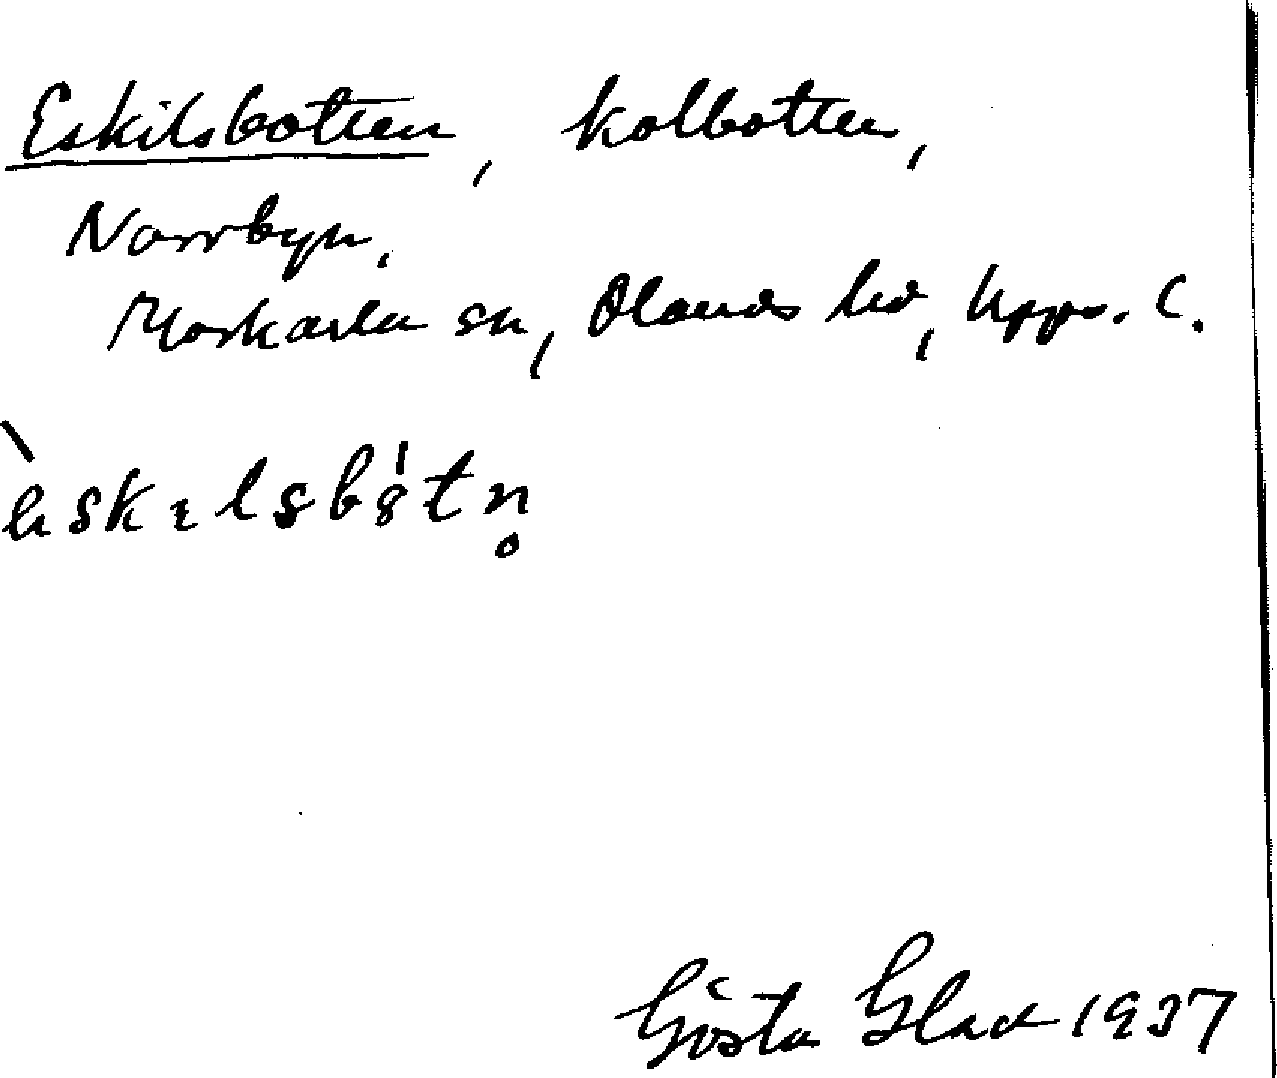 Eskilsbotten, kolbotten,
Norrbyn,
Morkarla sn, Olands hd, Upps. l.
Gösta Glad 1937